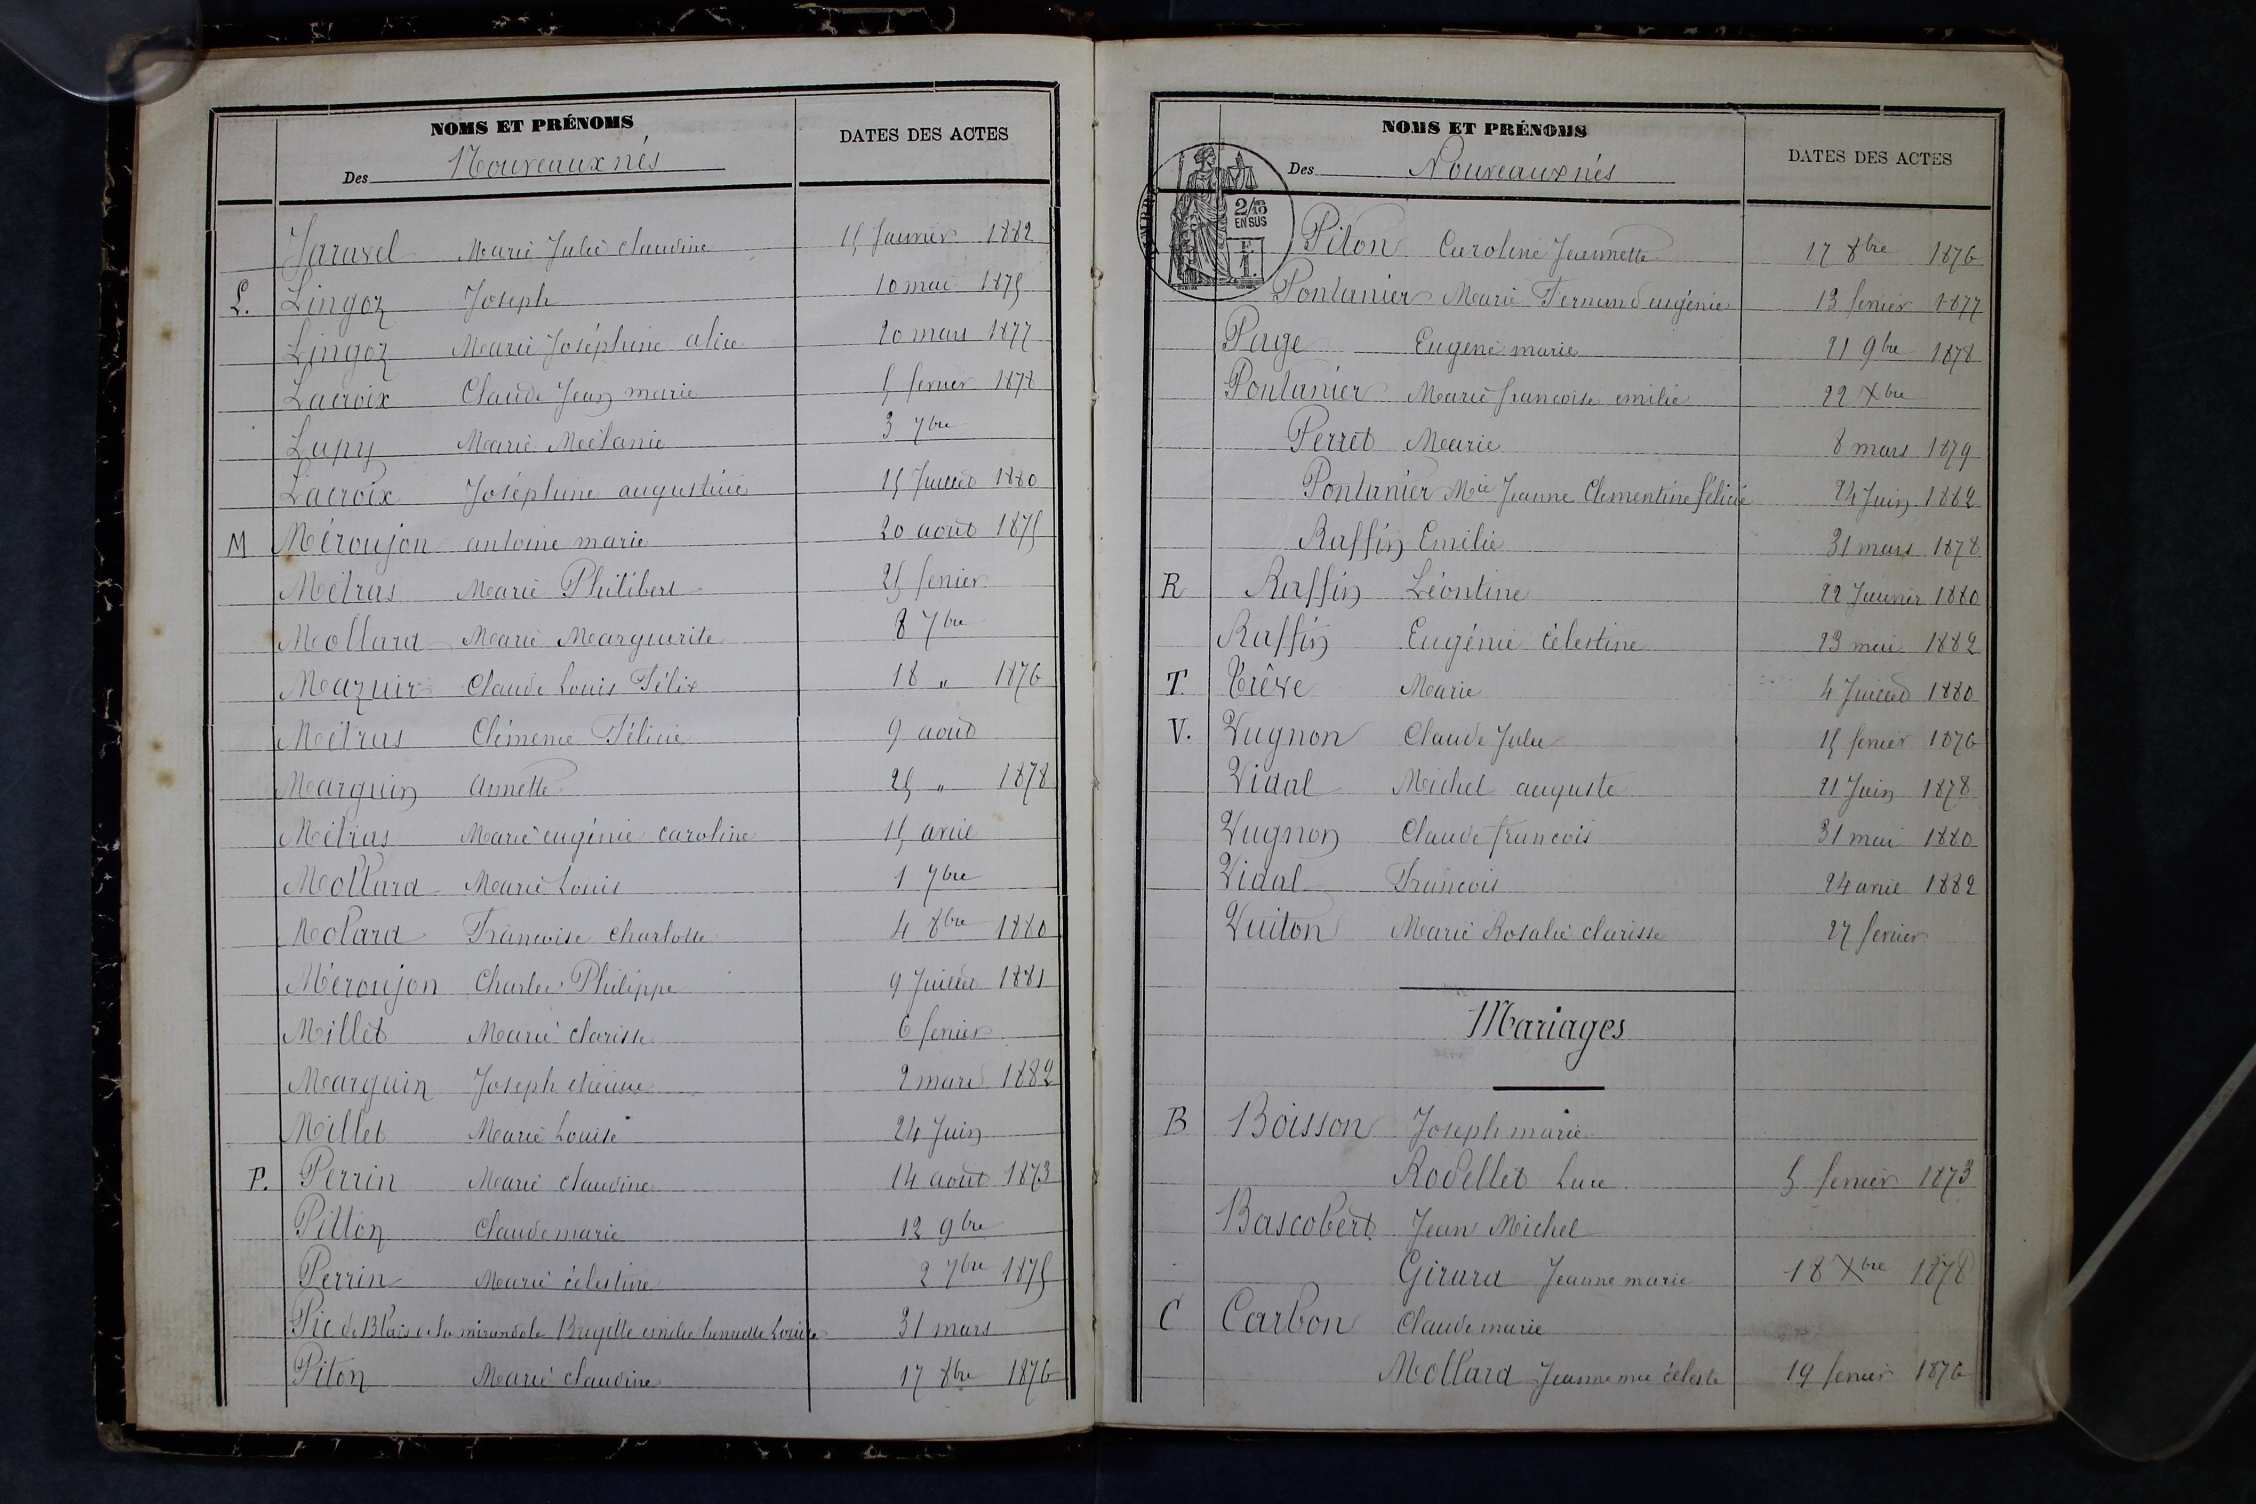 NOMS ET PRÉNOMS
DATES DES ACTES
Des Nouveaux nés
Jaravel Marie Julie claudine 15 Janvier 1882
L. Lingoz Joseph 10 mai 1875
Lingoz Marie Joséphine alice 20 mars 1877
Lacroix Claude Jean marie 5 fevrier 1878
Lupy Marie Mélanie 3 7bre
Lacroix Joséphine augustine 15 Juillet 1880
M Méroujon antoine marie 20 août 1875
Métras Marie Philibert 25 fevrier
Mollard Marie Marguerite 8 7bre
Mazuir Claude Louis Félix 18 " 1876
Métras Clémence Félicie 9 août
Marguin annette 25 " 1878
Métras Marie eugénie caroline 15 avril
Mollard Marie Louis 1 7bre
Molard Francoise charlotte 4 8bre 1880
Méroujon Charles Philippe 9 Juillet 1881
Millet Marie clarisse 6 fevrier
Marguin Joseph etienne 2 mars 1882
Millet Marie Louise 24 Juin
P. Perrin Marie claudine 14 août 1873
Pillon claude marie 12 9bre
Perrin Marie célestine 2 7bre 1875
Pic de Blais de la mirandole emilie henriette Louise 31 mars
Piton Marie claudine 17 8bre 1876
NOMS ET PRÉNOMS
DATES DES ACTES
Des Nouveaux nés
2/10
EN SUS
F
1.
Piton Caroline Jeannette 17 8bre 1876
Pontanier Marie Fernand eugénie 13 fevrier 1877
Page Eugene marie 21 9bre 1878
Pontanier Marie francoise emilie 22 Xbre
Perret Marie 8 mars 1879
Pontanier Mie Jeanne Clementine félicie 24 Juin 1882
Raffin Emilie 31 mars 1878
R Raffin Léontine 22 Janvier 1880
Raffin Eugénie célestine 23 mai 1882
T. Trêve Marie 4 Juillet 1880
V. Vugnon Claude Julie 15 fevrier 1876
Vidal Michel auguste 21 Juin 1878
Vugnon Claude francois 31 mai 1880
Vidal Francois 24 avril 1882
Vuiton Marie Rosalie clarisse 27 fevrier
Mariages
B Boisson Joseph marie
Rodellet Luce 5 fevrier 1873
Bascobert Jean Michel
Girard Jeanne marie 18 Xbre 1878
C Carbon Claude marie
Mollard Jeanne mie céleste 19 fevrier 1876